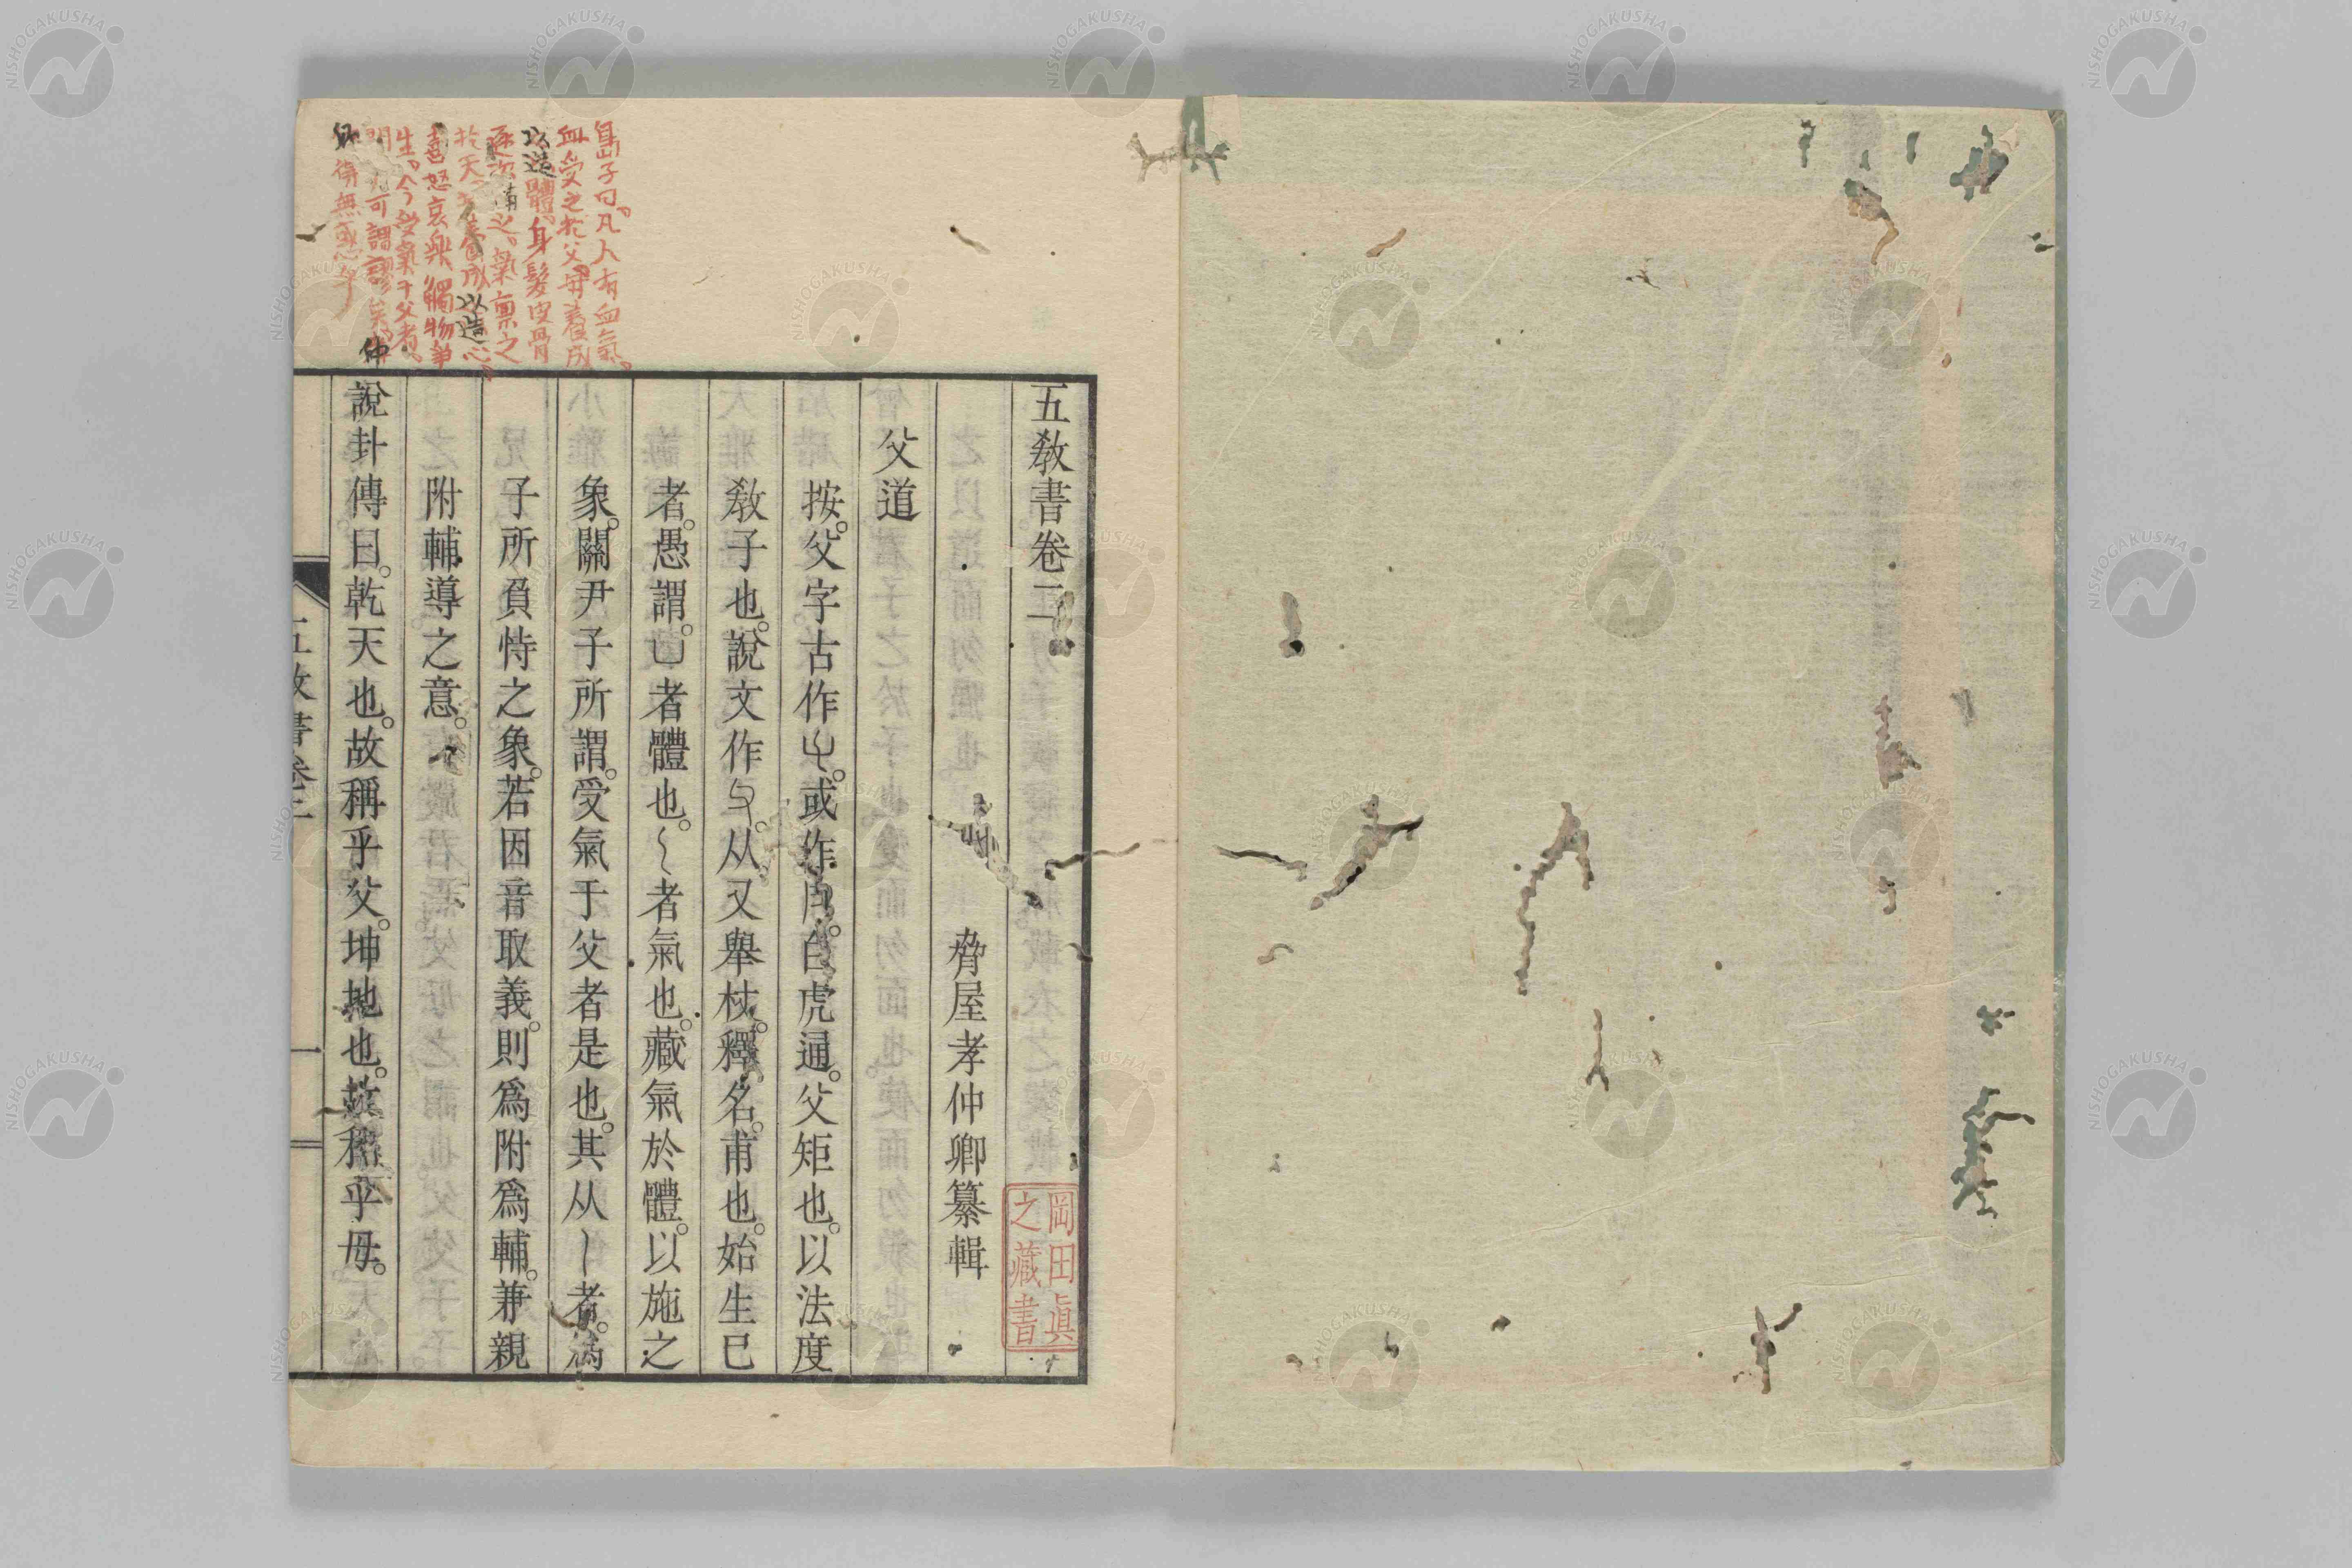 五教書卷二
脅屋孝仲卿纂輯
父道
按。父字古作。或作。白虎通。父矩也。以法度
敎子也。說文作。从又舉杖。釋名。甫也。始生己
者。愚謂。凵者體也。者氣也。藏氣於體。以施之
象。關尹子所謂。受氣于父者是也。其从者。為
子所負恃之象。若因音取義。則爲附爲輔。兼親
附輔導之意。
說卦傳曰。乾天也。故稱乎父。坤地也。故稱乎母。
五敎書卷二
一
岡田眞
之藏書
島子曰。凡人有血氣。
血受之於父母。養成
以造體。身髮皮骨
逐次備之。氣稟之
於天。成以造心。
喜怒哀樂觸物爭
生。今受氣于父者。
可謂謬矣。仲
得無惑乎
NISHOGAKUSHA